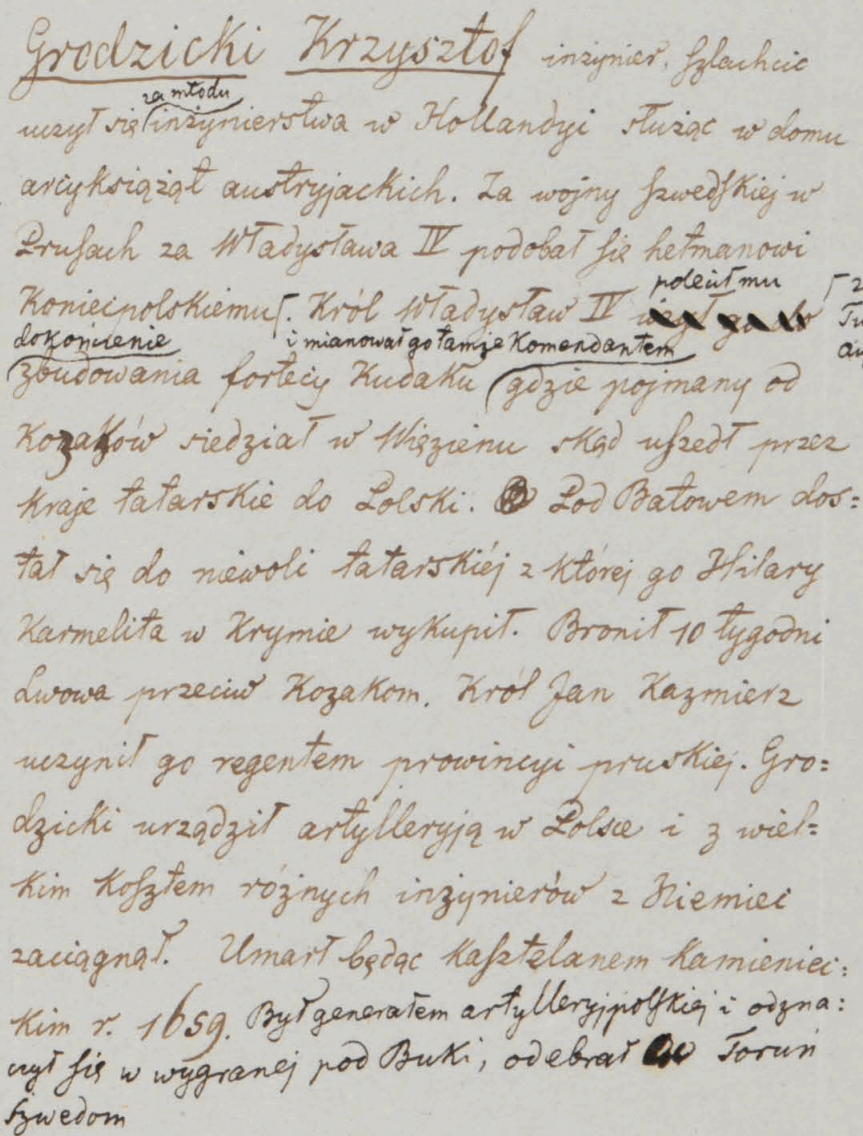 Grodzicki Krzysztof inżynier, szlachcic
za młodu
uczył się inżynierstwa w Hollandyi służąc w domu
arcyksiążąt austryjackich. Za wojny szwedzkiej w
Prusach za Władysława IV podobał się hetmanowi
polecił mu
Koniecpolskiemu. Król Władysław IV
dokończenie i mianował go tamże Komendantem
zbudowania fortecy Kudaku gdzie pojmany od
Kozaków siedział w Więzienu skąd uszedł przez
Kraje tatarskie do Polski. Pod Batowem dos=
tał się do niewoli tatarskiéj z której go Hilary
Karmelita w Krymie wykupił. Bronił 10 tygodni
Lwowa przeciw Kozakom. Król Jan Kazmierz
uczynił go regentem prowincyi pruskiej. Gro=
dzicki urządził artylleryją w Polsce i z wiel=
kim Kosztem różnych inżynierów z Niemiec
zaciągnął. Umarł będąc Kasztelanem Kamieniec=
Kim r. 1659. Był generałem artylleryj polskiej i odzna=
czył się w wygranej pod Buki, odebrał Toruń
szwedom